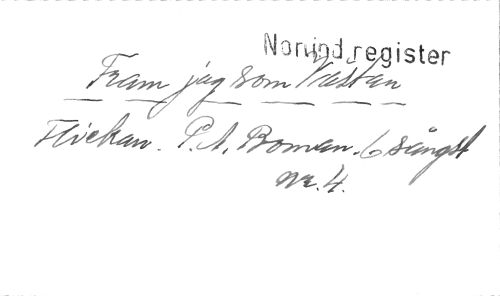 Norlind register
Fram jag som Nästan
Flickan. P. A. Boman. 6 sångst
nr. 4.